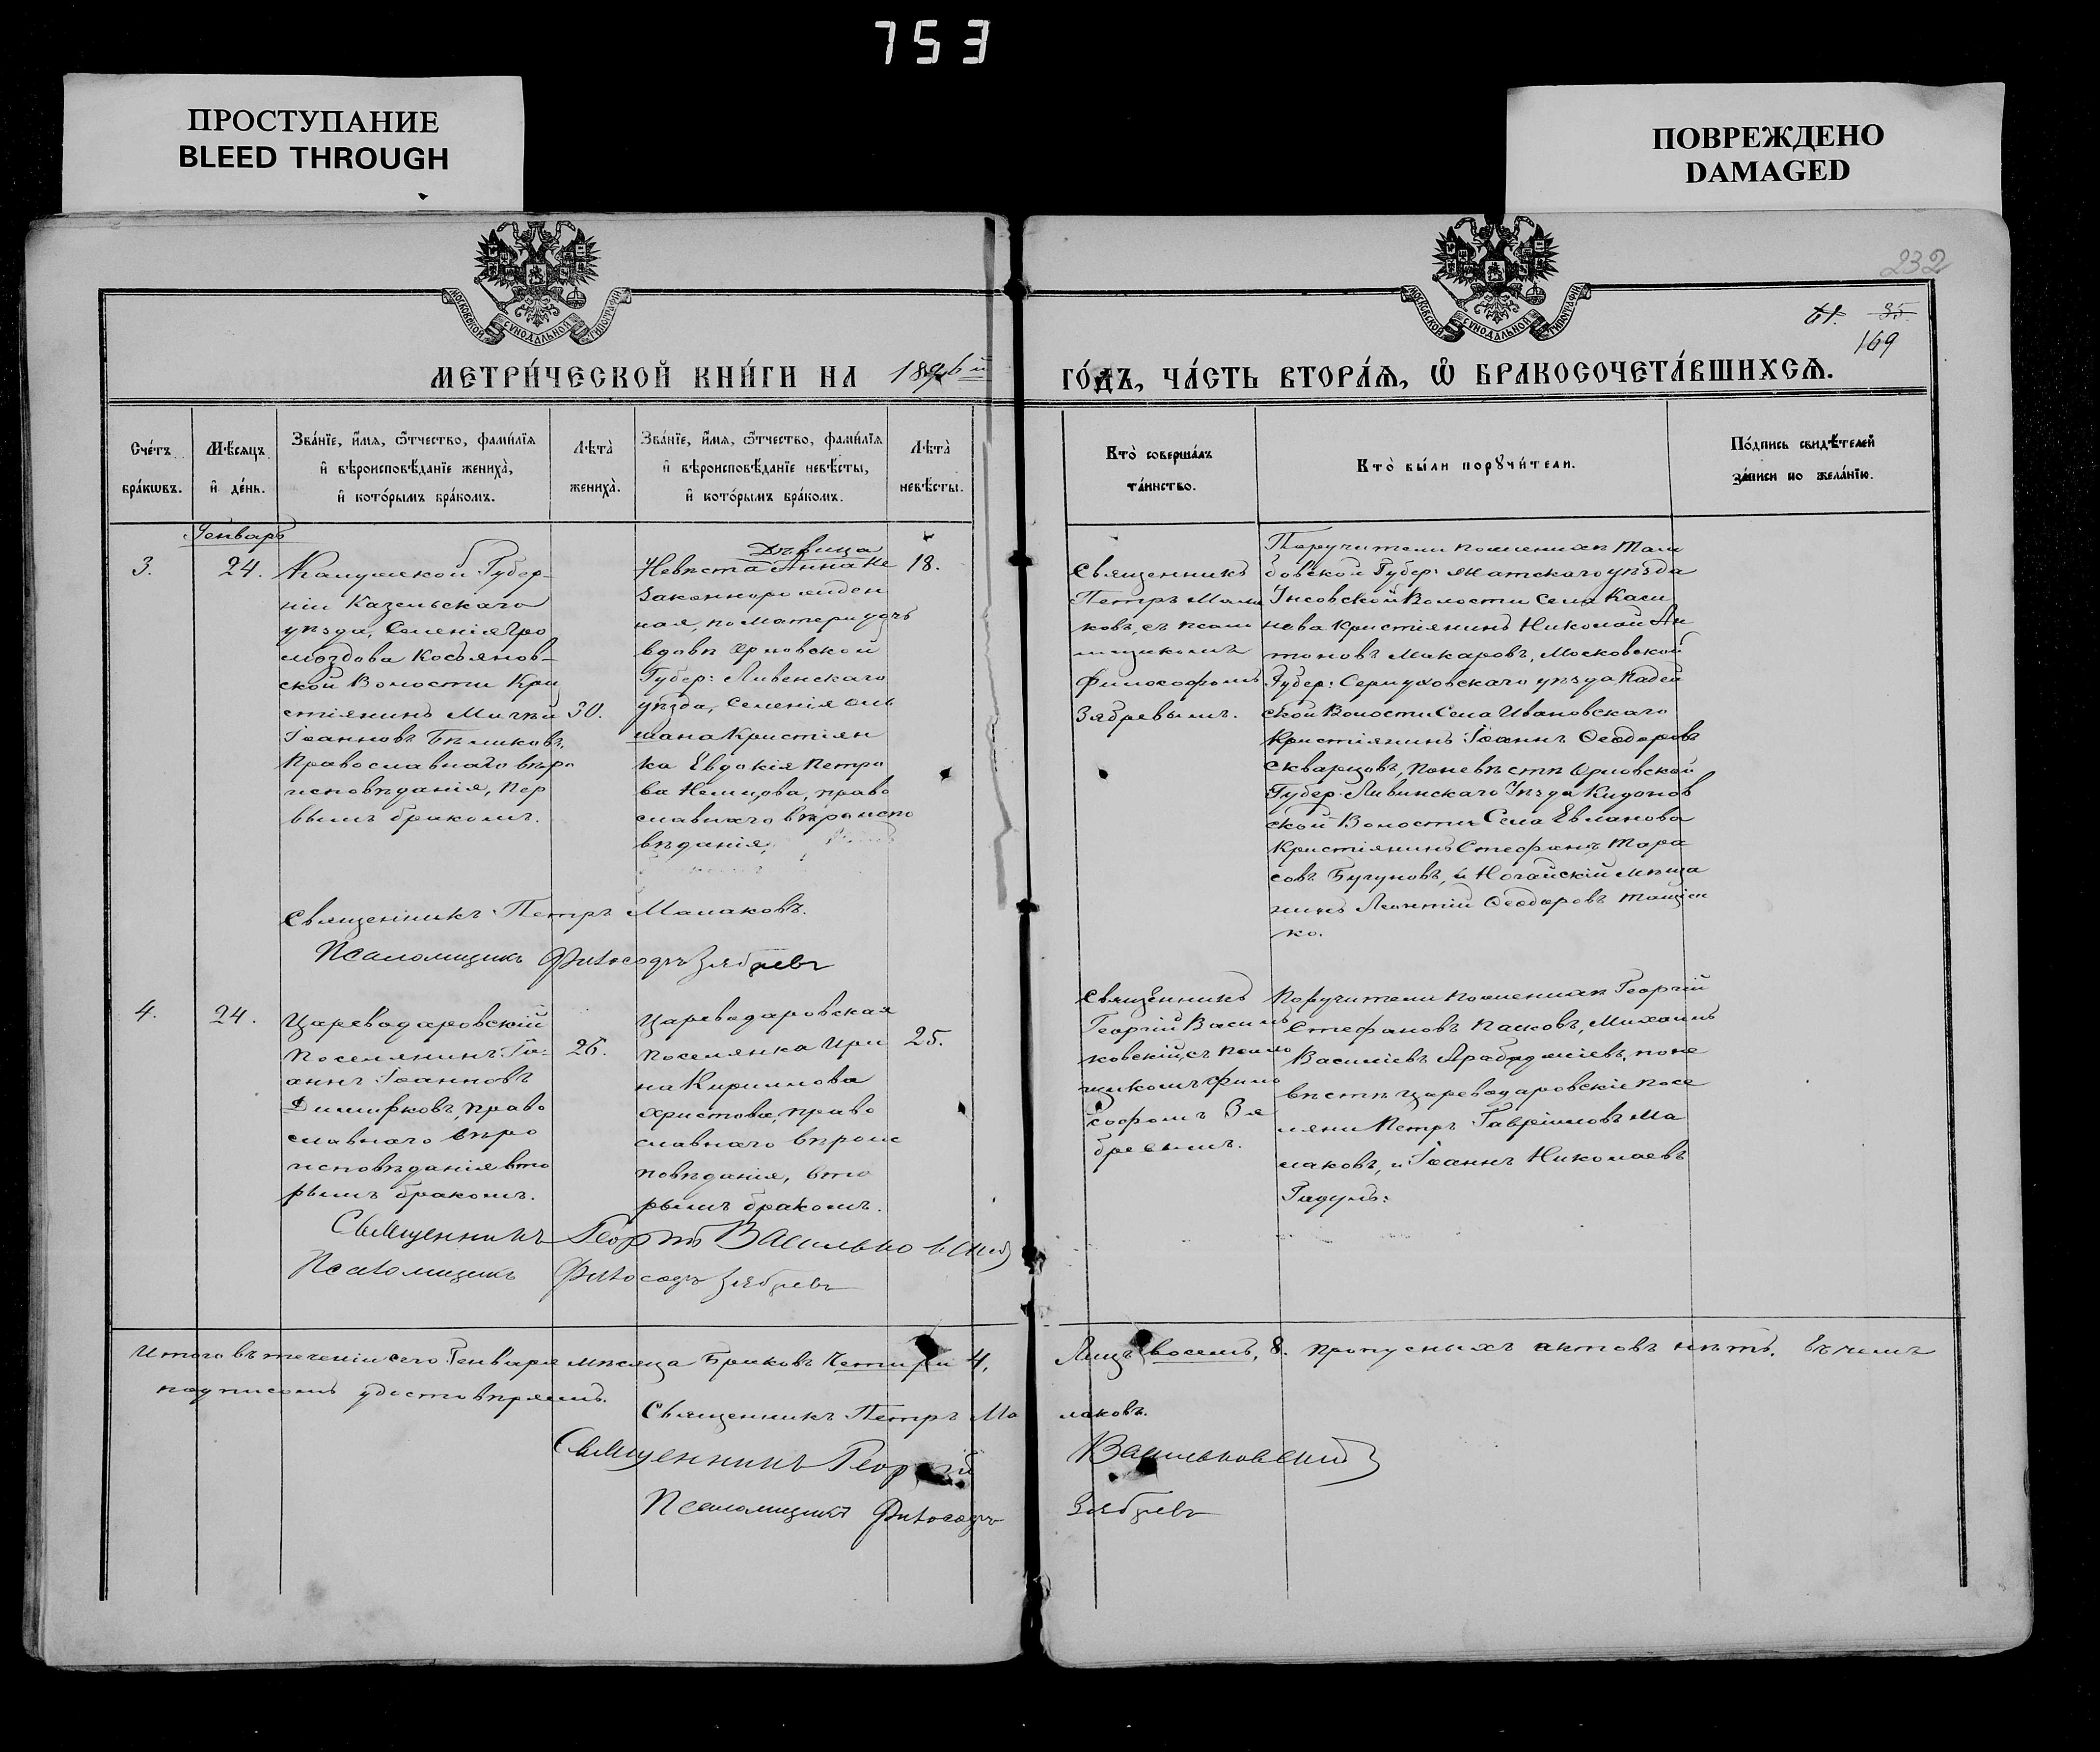 753
ПРОСТУПАНИЕ
BLEED THROUGH
ПОВРЕЖДЕНО
DAMAGED
232
61. 35
169
МОСКОВСКОЙ СѴНОДАЛЬНОЙ ТИПОГРАФІИ
МОСКОВСКОЙ СѴНОДАЛЬНОЙ ТИПОГРАФІИ
МЕТРИ́ЧЕСКОЙ КНИ́ГИ НА 1896й ГО́ДЪ, ЧА́СТЬ ВТОРА́Ѧ, Ѡ҆ БРАКОСОЧЕТА́ВШИХСѦ.
Сче́тъ бра́кѡвъ.
Мѣ́сѧцъ и҆ де́нь.
Зва́нїе, и҆́мѧ, ѻ҆́тчество, фами́лїѧ
и҆ вѣроисповѣ́данїе жениха̀,
и҆ кото́рымъ бра́комъ.
Лѣта̀ жениха̀.
Зва́нїе, и҆́мѧ, ѻ҆́тчество, фами́лїѧ
и҆ вѣроисповѣ́данїе невѣ́сты,
и҆ кото́рымъ бра́комъ.
Лѣта̀ невѣ́сты.
Кто̀ соверша́лъ та́инство.
Кто̀ бы́ли порꙋчи́тели.
По́дпись свидѣ́телей
за́писи по жела́нїю.
Генварь
3.
24.
Калужской Губер-
ніи Казельскаго
уѣзда, Селенія Гро
моздова Косьянов-
ской Волости Кри
стіянинъ Михѣй
Іоанновъ Бѣликовъ,
Православнаго вѣро
исповѣданія, Пер
вымъ бракомъ.
30.
Дѣвица
Невѣста Анна не
законнорожден
ная, по матери дочь
вдовы Орловской
Губер: Ливенскаго
уѣзда, Селенія Оль
шана Кристіян
ка Евдокія Петро
ва Немцова, право
славнаго вѣроиспо
вѣданія,
18.
Священникъ
Петръ Мала
ковъ, съ псало
мщикомъ
Философомъ
Зябревымъ.
Поручители по женихѣ Там
бовской Губер: Елатскаго уѣзда
Волости Села
нова Кристіянинъ Николай Ан
тоновъ Макаровъ, Московской
Губер: Серпуховскаго уѣзда
ской Волости Села Ивановскаго
Кристіянинъ Іоаннъ Ѳеодоровъ
Скварцовъ, по невѣстѣ Орловской
Губер. Ливинскаго Уѣзда
ской Волости Села Евланова
Кристіянинъ Стефанъ Тара
совъ Бугуновъ, и Ногайскій мѣща
нинъ Леонтій Ѳеодоровъ Тащен
ко.
Священникъ Петръ Малаковъ.
Псаломщикъ Философъ Зябревъ
4.
24.
Цареводаровскій
поселянинъ Іо-
аннъ Іоанновъ
Димитровъ, право
славнаго вѣро
исповѣданія вто
рымъ бракомъ.
26.
Цареводаровская
поселянка Ири
на Кириллова
Христова, право
славнаго вѣроис
повѣданія, вто
рымъ бракомъ.
25.
Священникъ
Георгій Василь
ковскій, съ псало
мщикомъ Фило
софомъ Зя
бревымъ.
Поручители по женихѣ Георгій
Стефановъ Пашовъ, Михаилъ
Василіевъ Арабаджіевъ, по не
вѣстѣ Цареводаровскіе посе
ляни Петръ Гавріиловъ Ма
лаковъ, и Іоаннъ Николаевъ
Гадулъ:
Священникъ Георгій Васильковскій
Псаломщикъ Философъ Зябревъ
Итого въ теченіи сего Генваря мѣсяца Браковъ Четыри 4, Лицъ восемь, 8. пропусныхъ актовъ нѣтъ. Въ чемъ
подписомъ удостовѣряемъ.
Священникъ Петръ Малаковъ.
Священникъ Георгій Васильковскій
Псаломщикъ Философъ Зябревъ